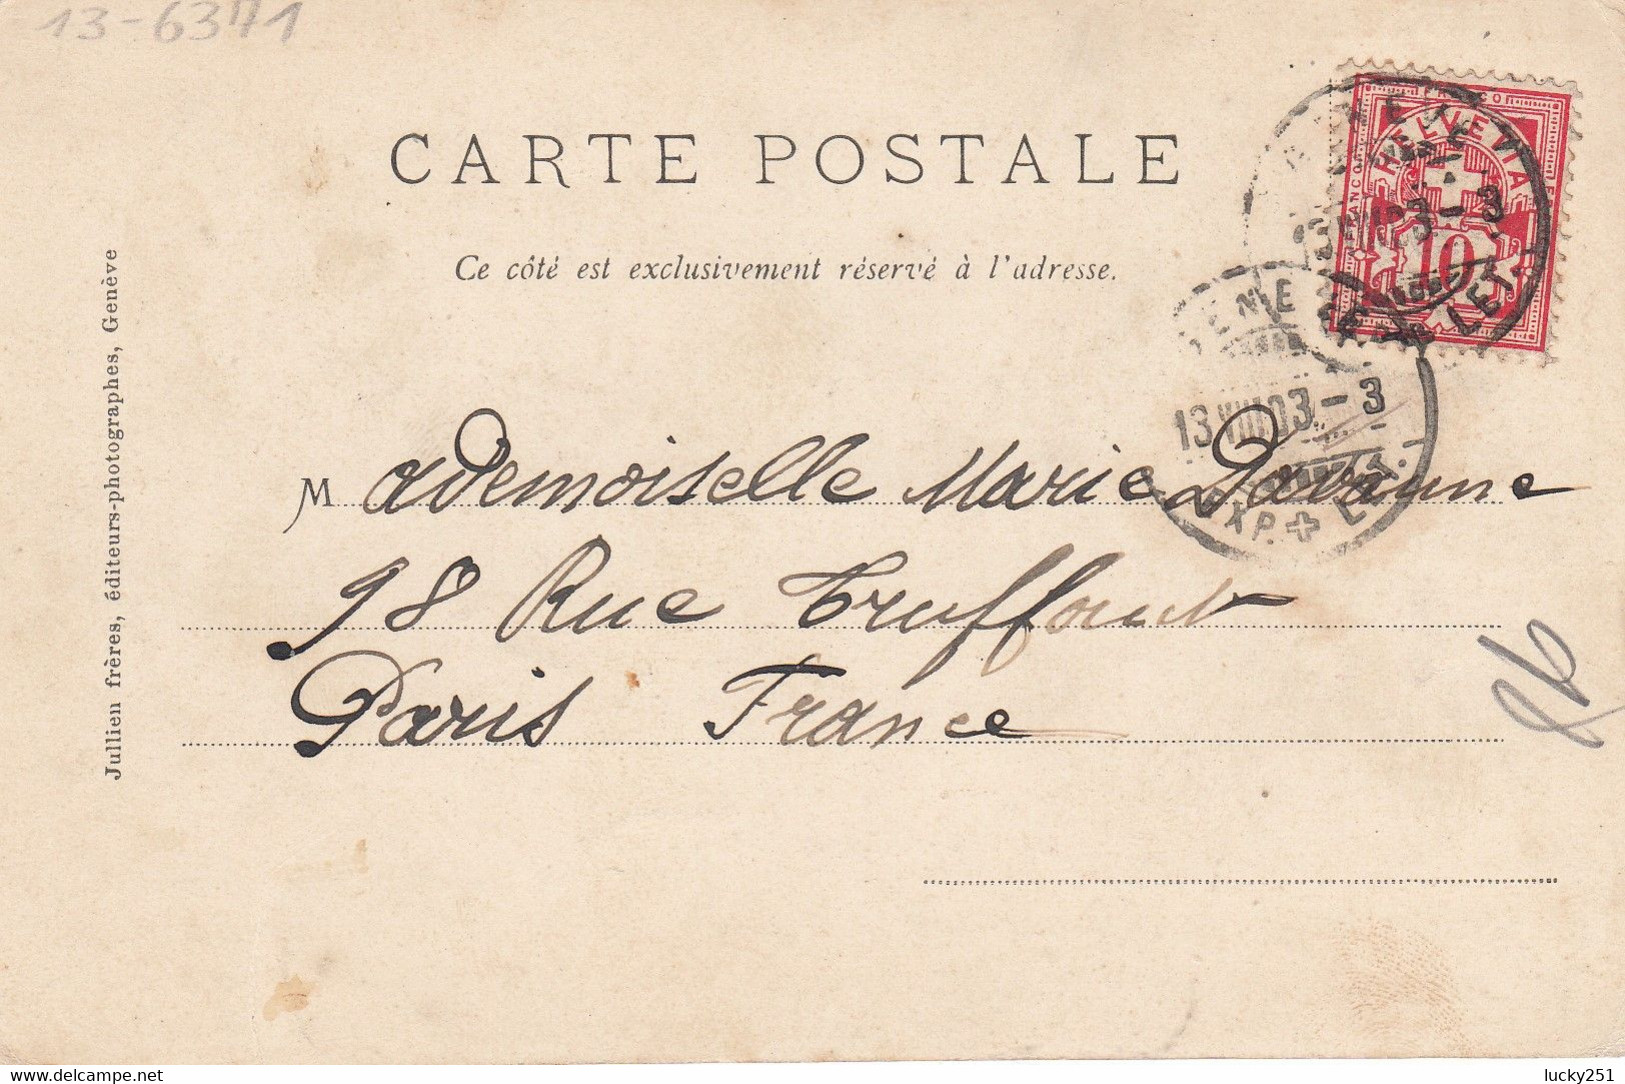 13-6371
CARTE POSTALE
Ce côté est exclusivement réservé à l'adresse.
FRANCO
HELVETIA
FRANCO
10
13 VIII 03 - 3
EXP. LET.
Mademoiselle Marie Davanne
98 Rue Truffaut
Paris France
Jullien frères, éditeurs-photographes, Genève
www.delcampe.net
lucky251